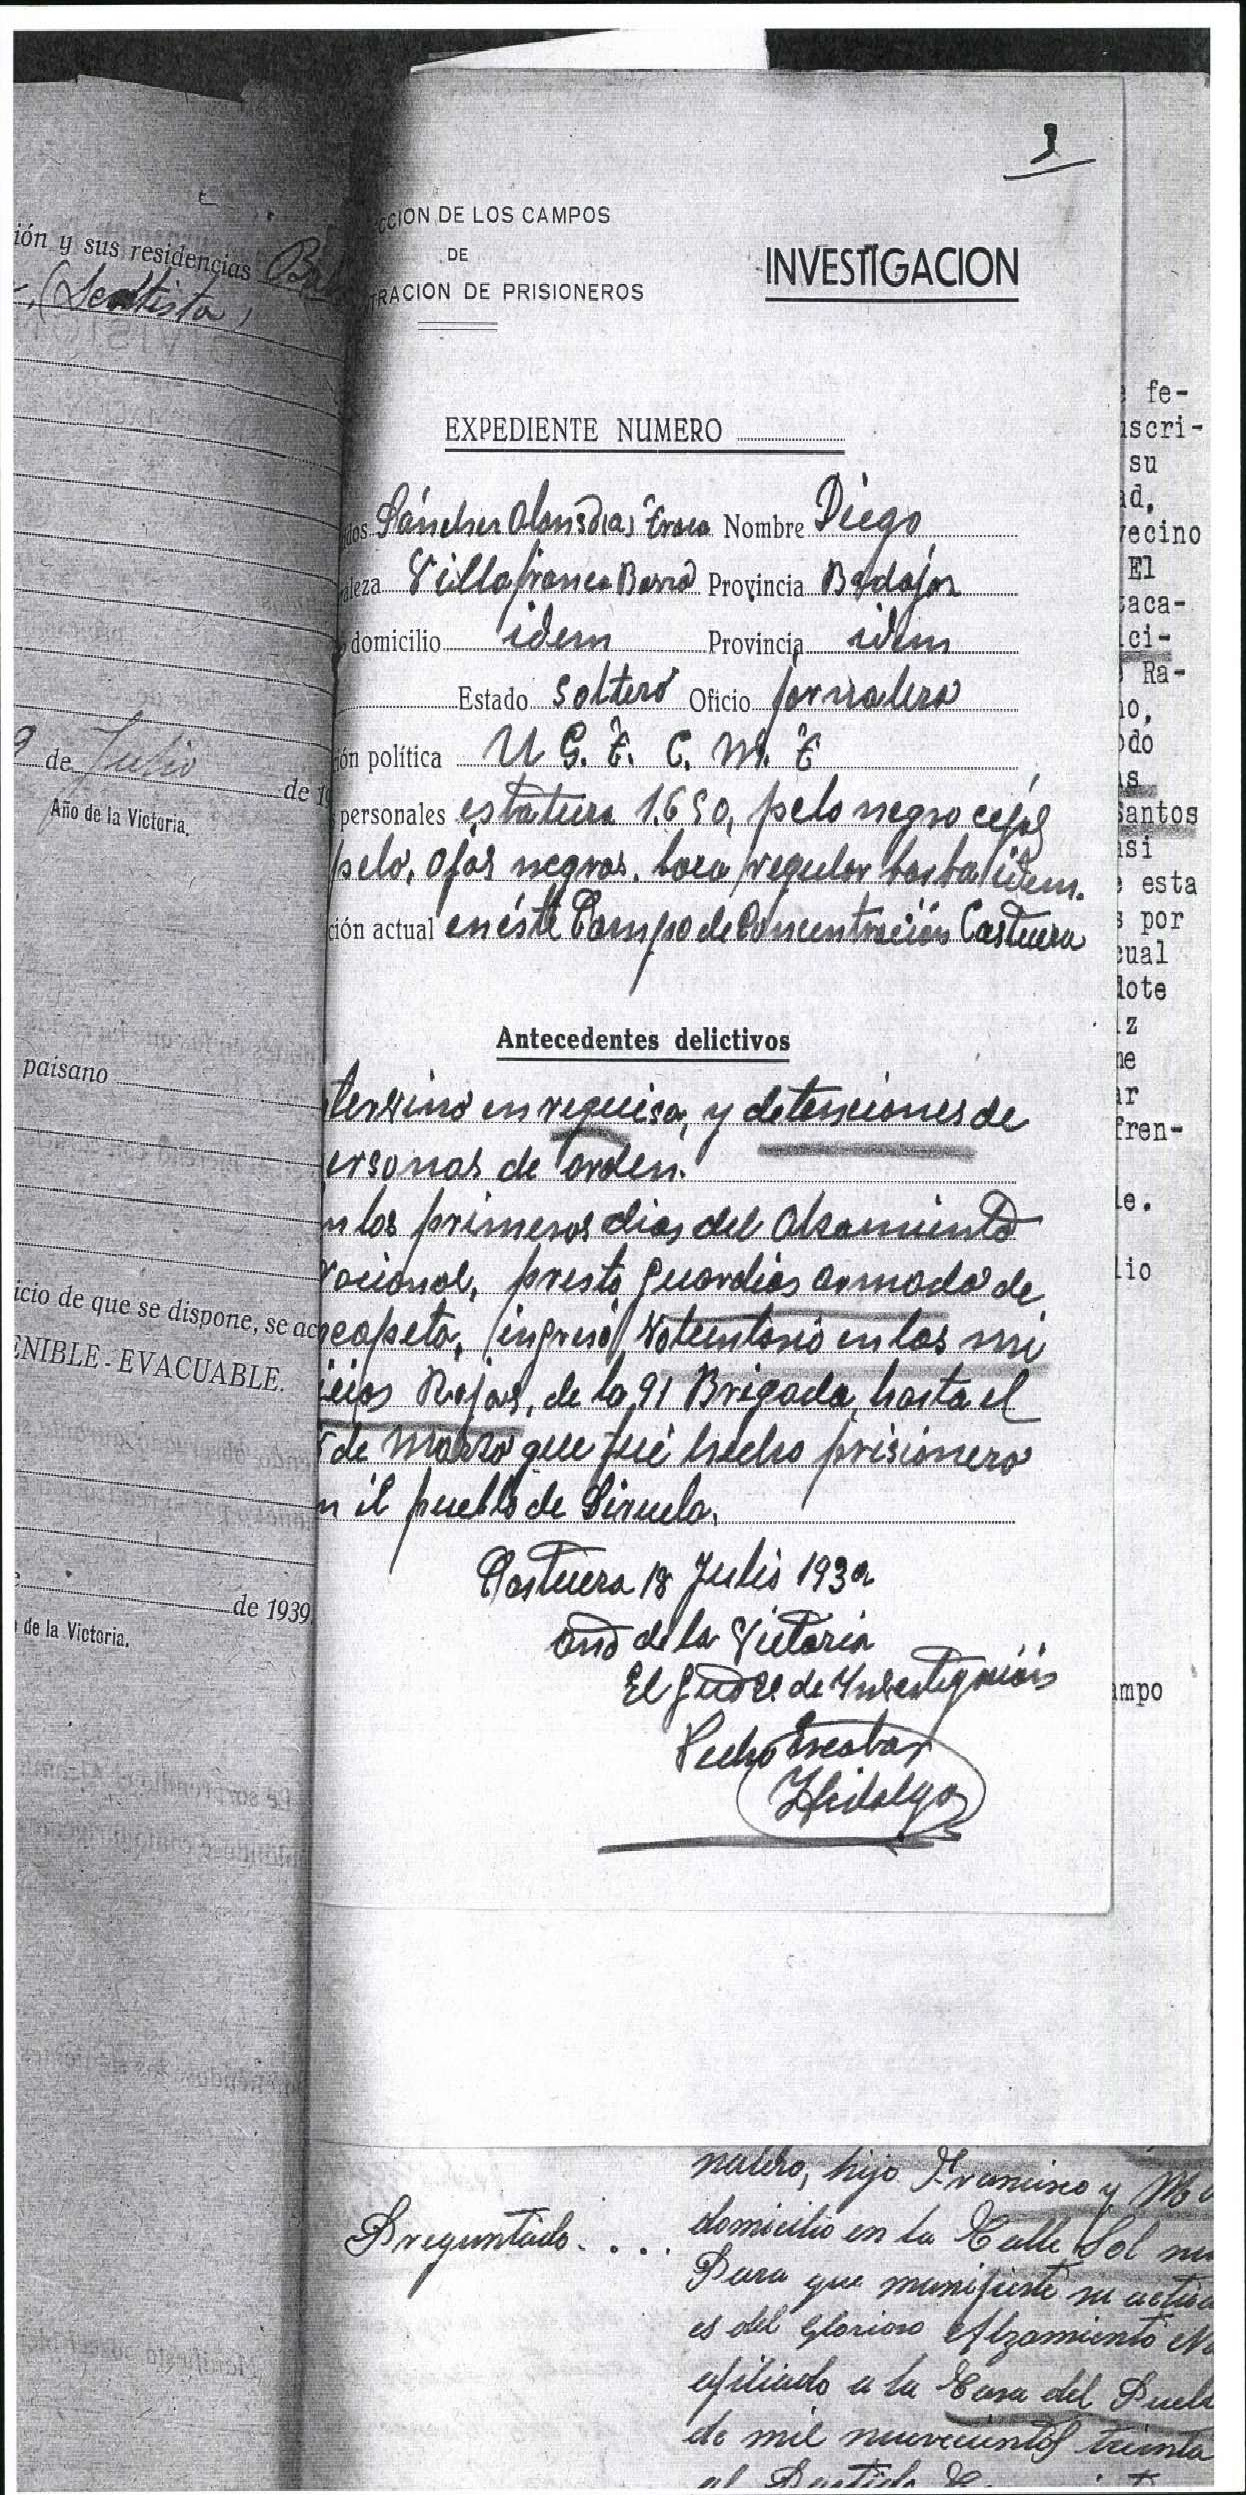 ión y sus residencias
(Sentista)
9 de Julio de 19
Año de la Victoria.
paisano
icio de que se dispone, se ac
ENIBLE - EVACUABLE.
de 1939
de la Victoria.
9
CCION DE LOS CAMPOS
DE
TRACION DE PRISIONEROS
INVESTIGACION
EXPEDIENTE NUMERO
dos Sánchez Nombre Diego
aleza Villafranca Barro Provincia Badajoz
domicilio idem Provincia idem
Estado Soltero Oficio jornalero
ón política U G. T.
personales estatura 1.650, pelo negro cejas
pelo, ojos negros, boca regular barba idem.
ción actual en éste Campo de Concentración Castuera
Antecedentes delictivos
tervino en requisa, y detenciones de
ersonas de orden.
n los primeros dias del Alzamiento
acional, prestó guardias armado de
scopeta, ingresó Voluntario en las mi
icias Rojas, de la 91 Brigada, hasta el
de Marzo que fué hecho prisionero
n el pueblo de Siruela.
Castuera 18 Julio 1939
año de la Victoria
El Juez de Investigación
Pedro Escobar
Hidalgo
fe-
scri-
su
ad,
vecino
El
taca-
ci-
Ra-
no,
odo
as
Santos
asi
esta
s por
cual
lote
z
ne
ar
fren-
le.
lio
ampo
nalero, hijo Francisco y Ma
domicilio en la Calle Sol nu
Preguntado. . . .
Para que manifieste su actua
es del Glorioso Alzamiento Na
afiliado a la Casa del Puebl
de mil nuevecientos treinta
al Partido